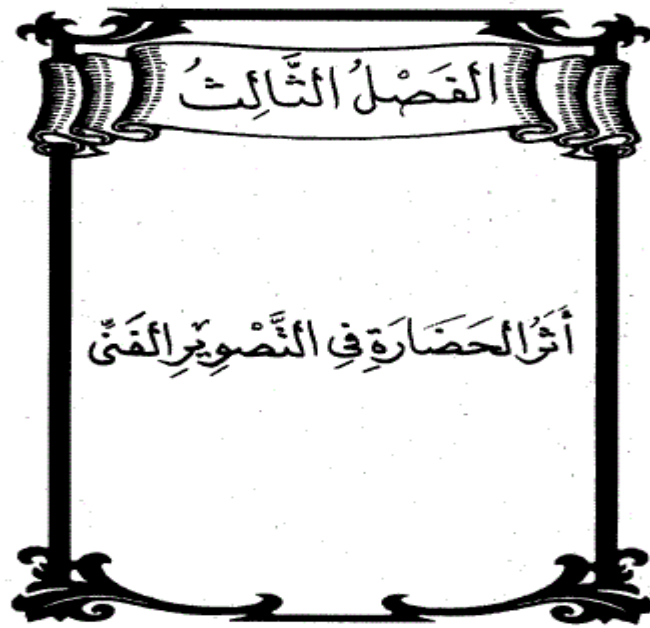 الفَصْلُ الثَّالِثُ
أَثَرُ الحَضَارَةِ فِي التَّصْوِيرِ الفَنِّى